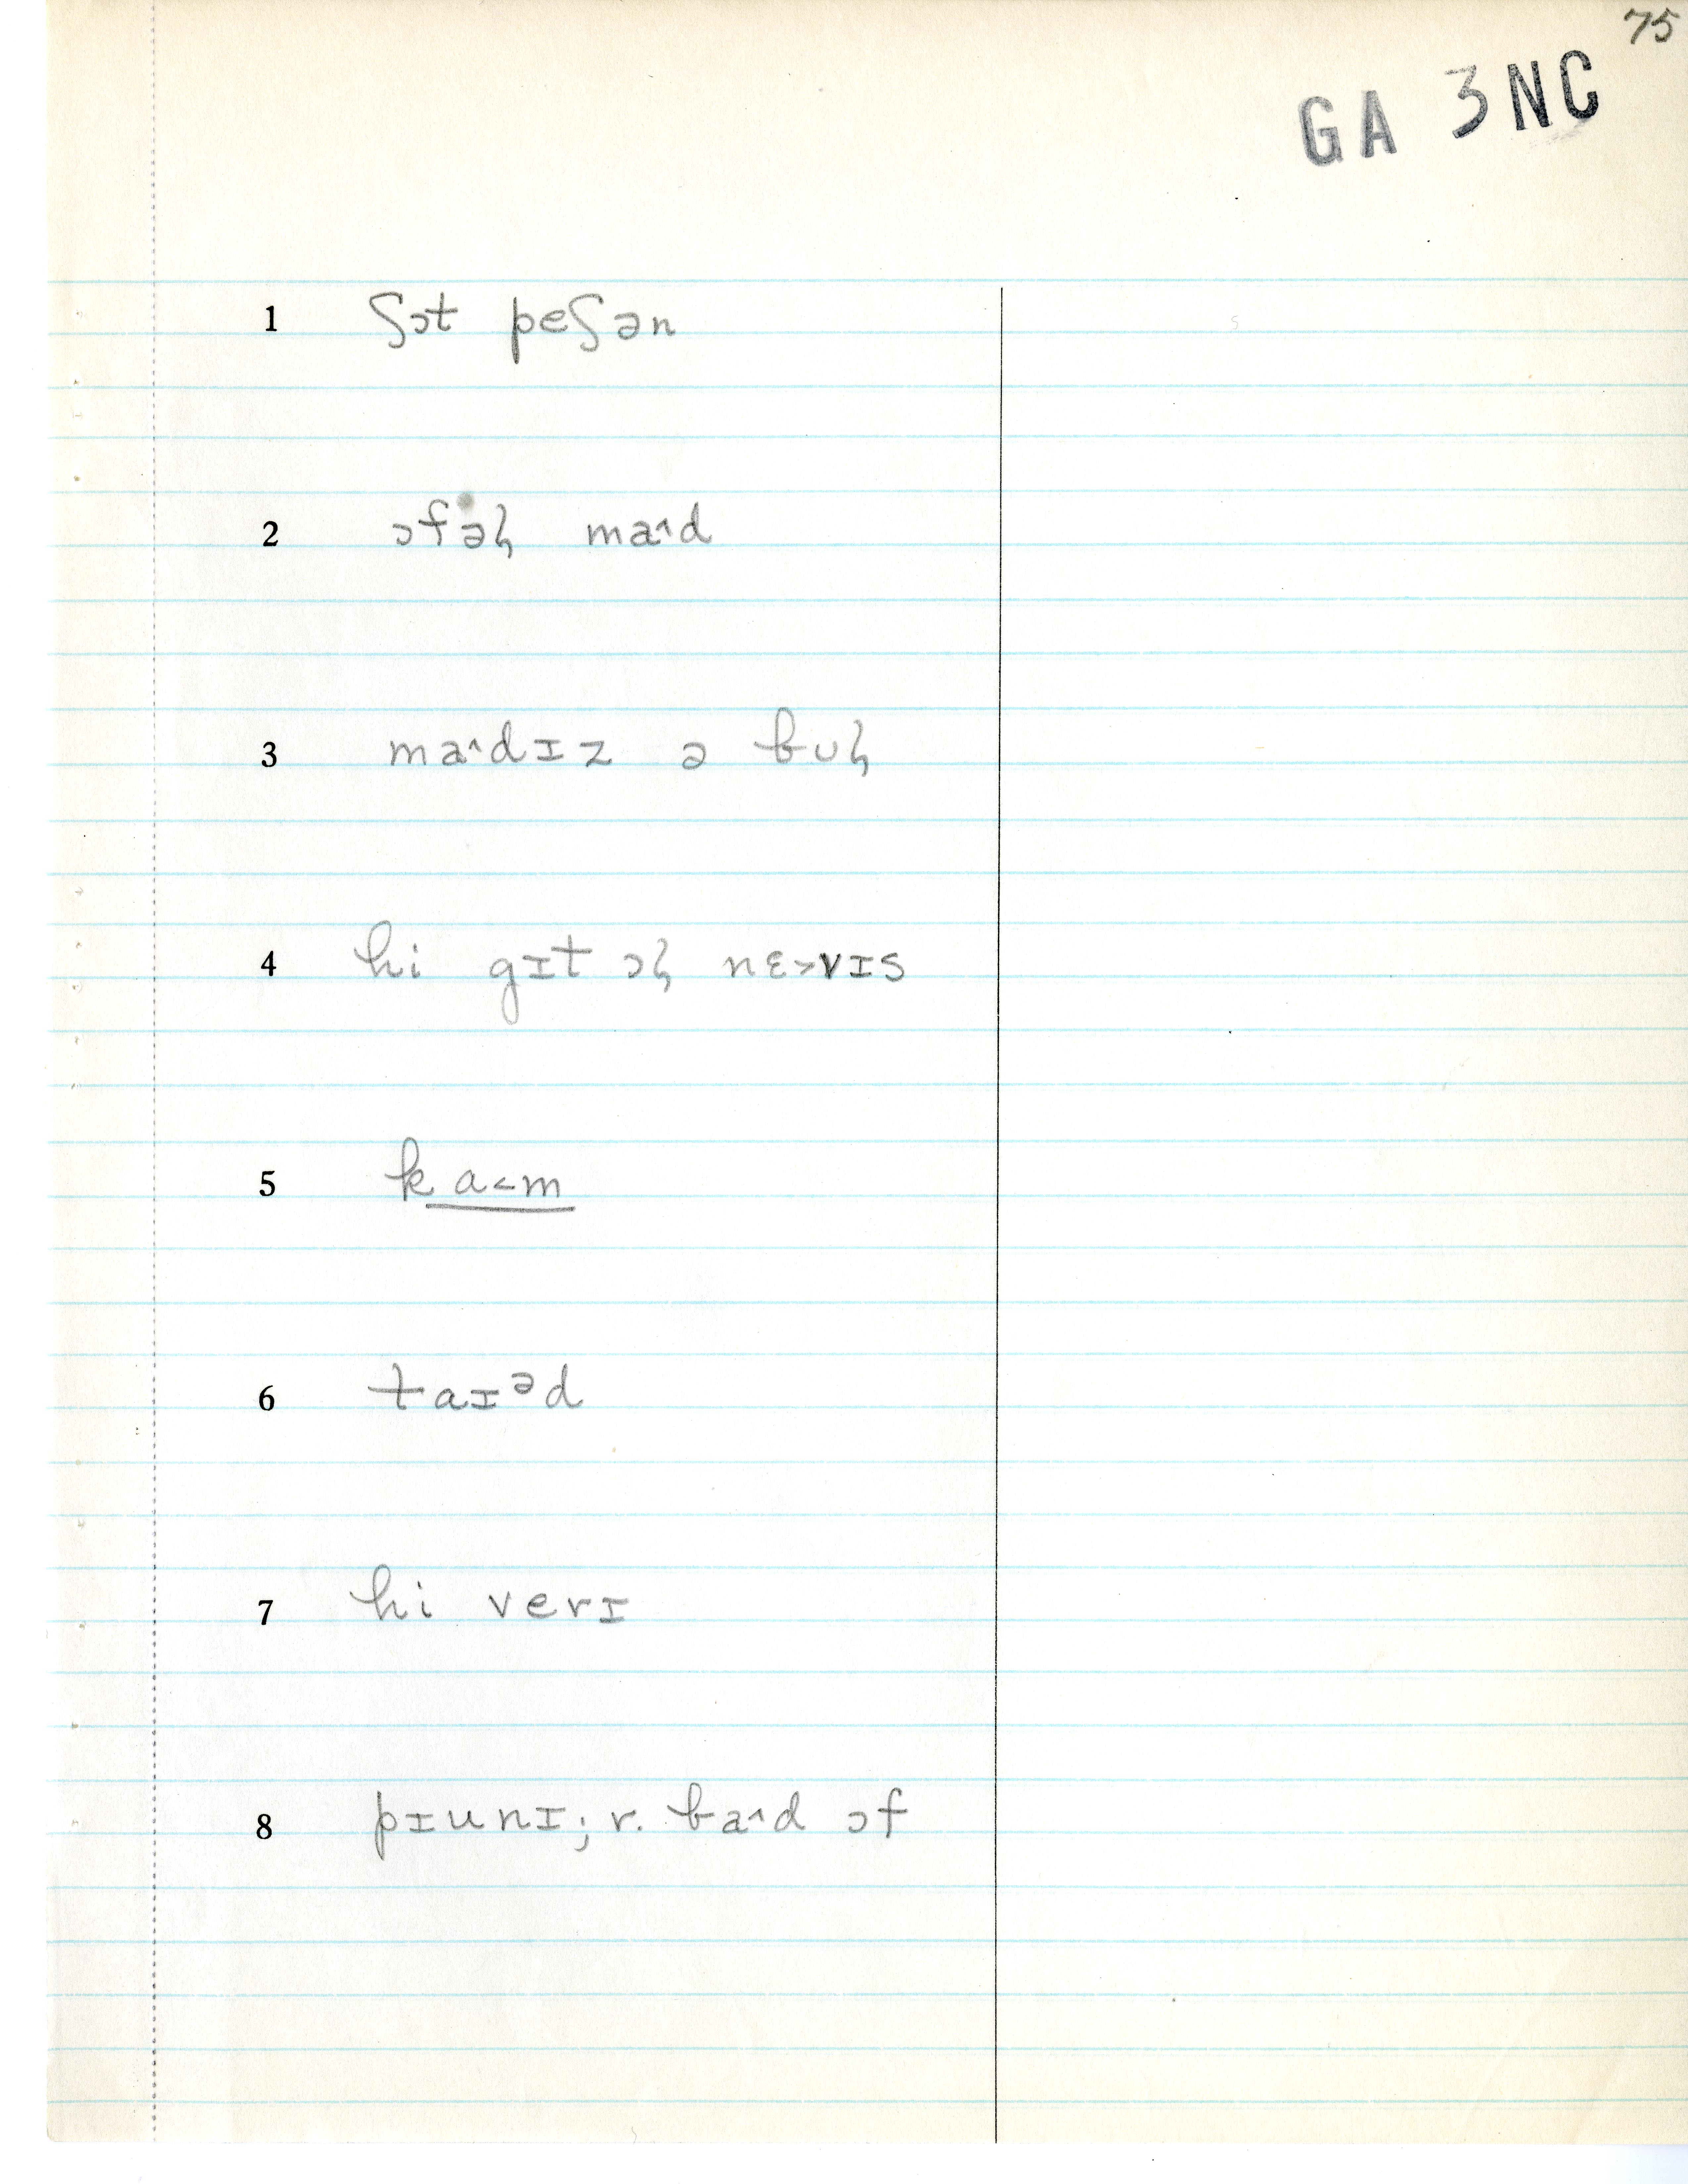 75
GA 3NC
1 ʃɔt peʃən
2 ɔfəɫ ma^d
3 ma^dɪz ə buɫ
4 hi gɪt ɔɫ nɛ>vɪs
5 ka<m
6 taɪᵊd
7 hi verɪ
8 pɪunɪ; r. ba^d ɔf